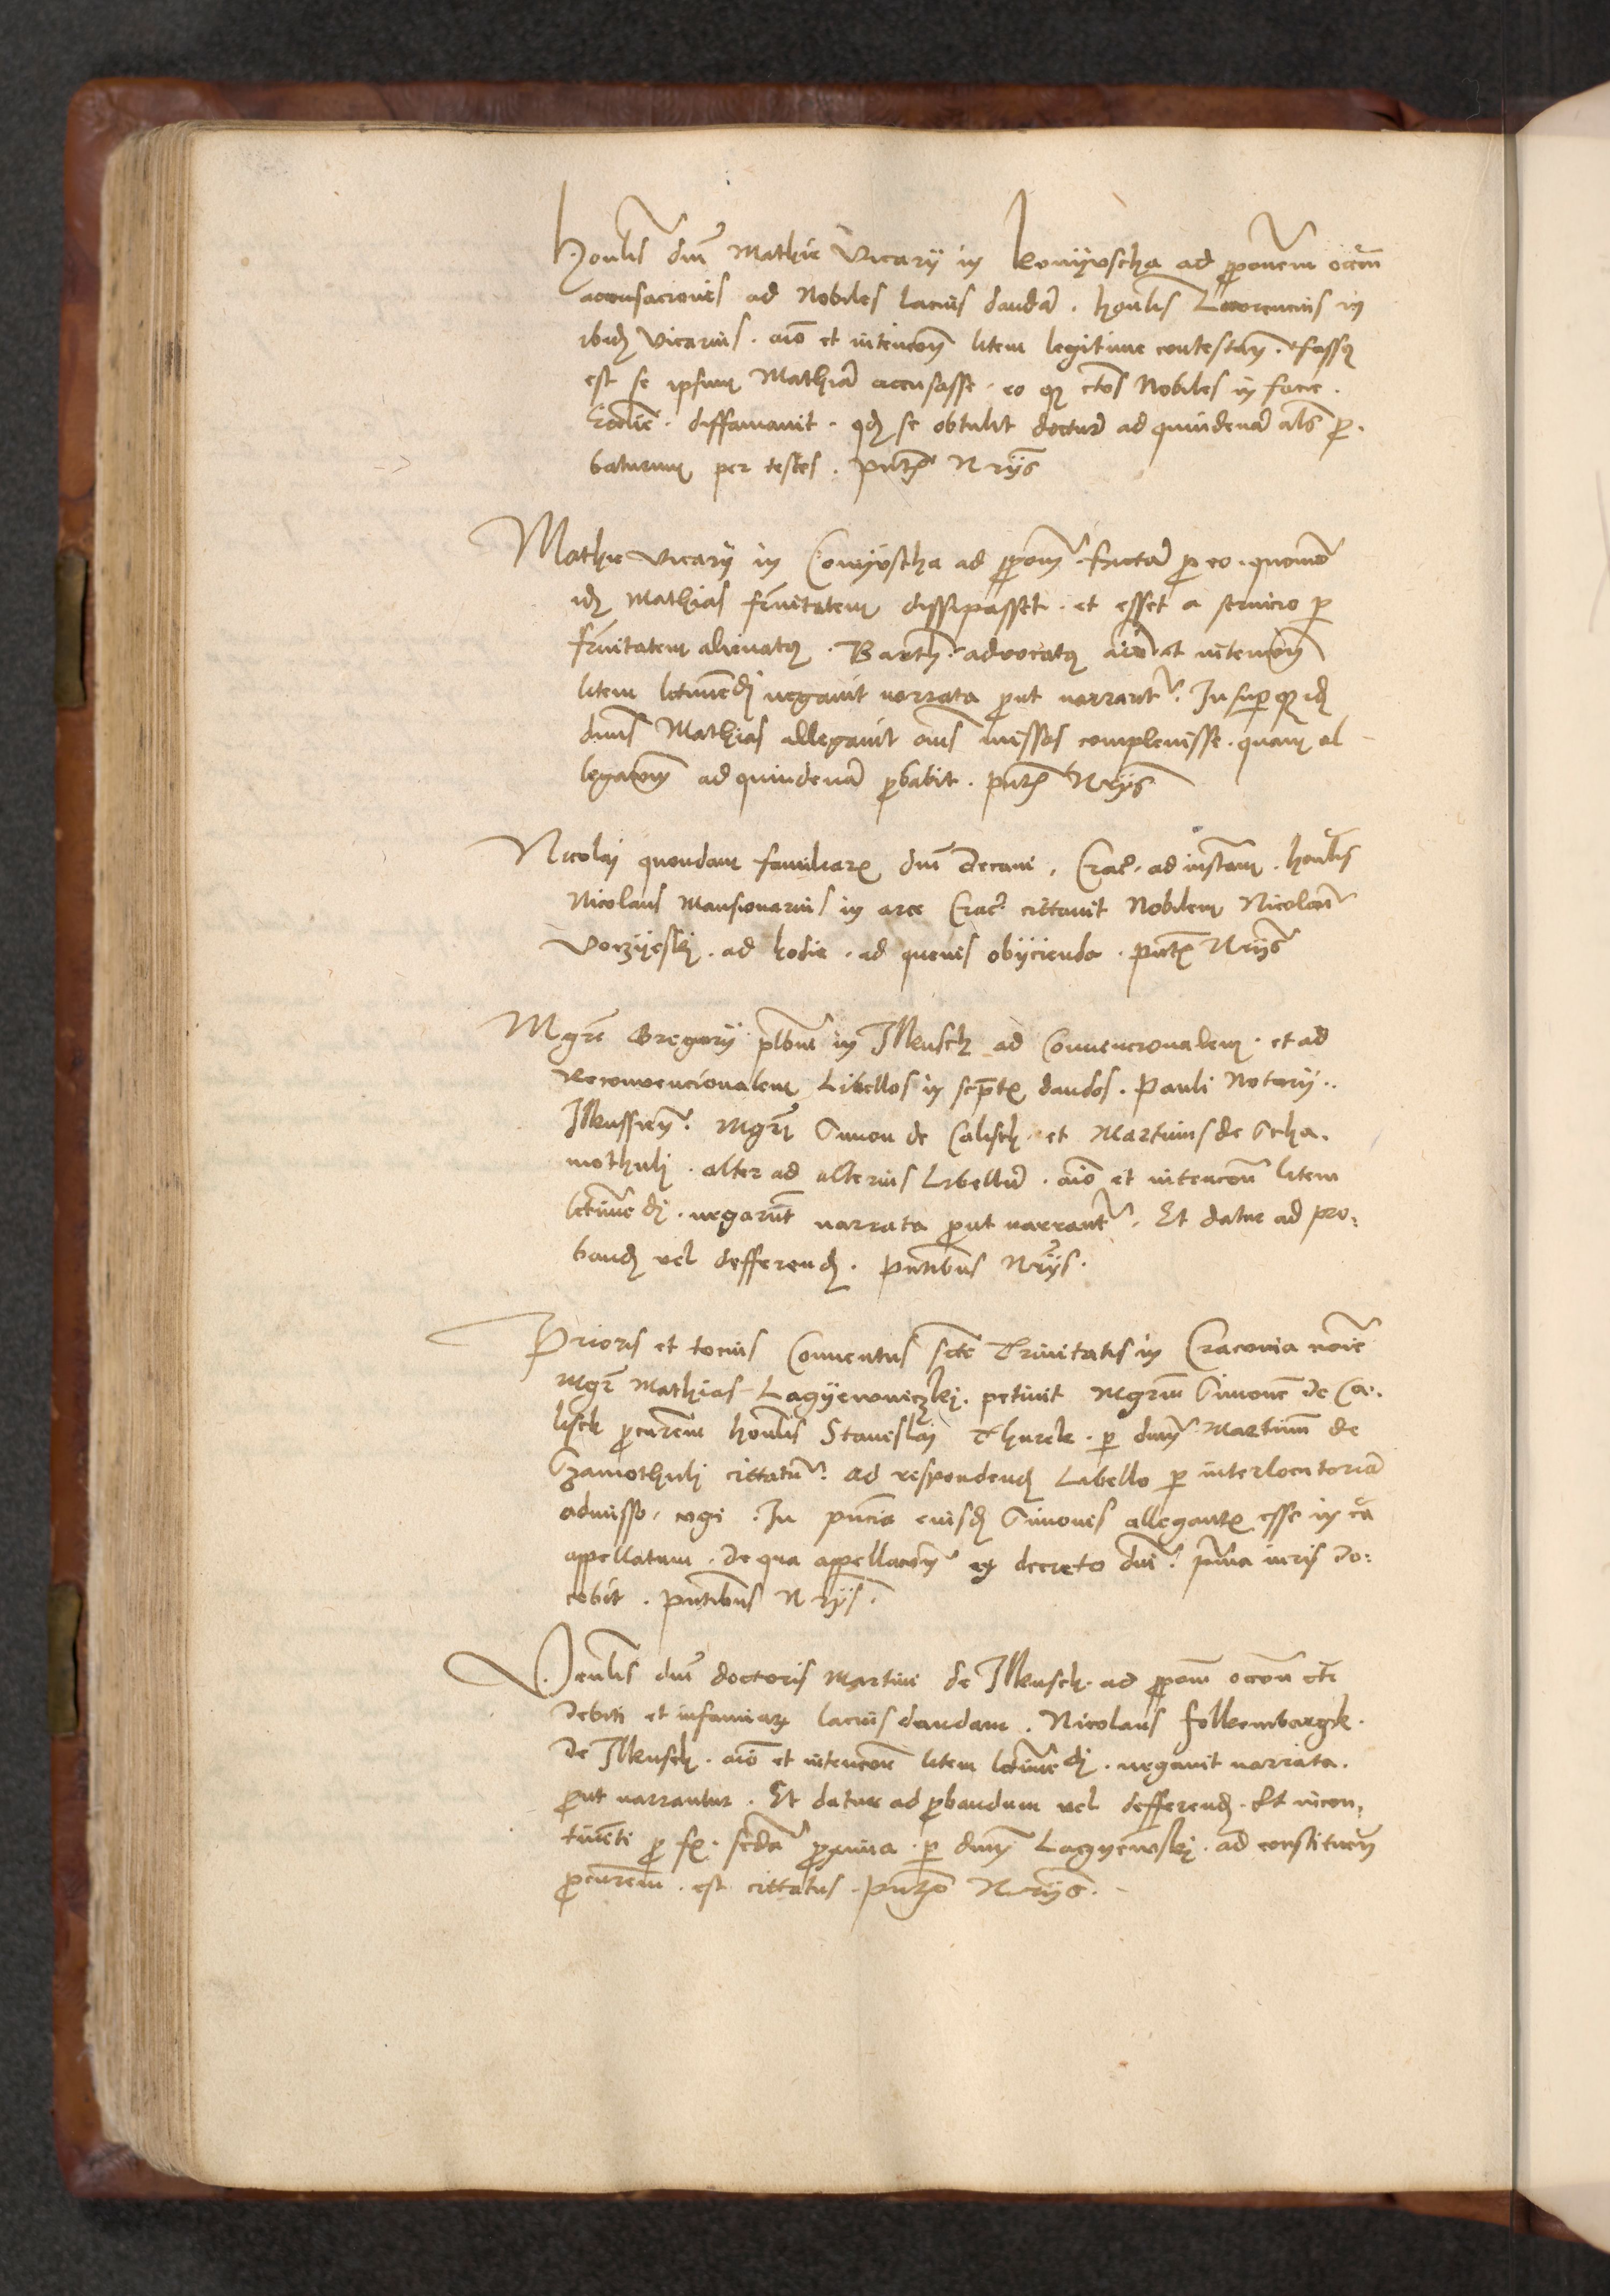 Honlis dni Mathie Vicarij in Konijuscha ad proponem occm
accusacionis ad Nobiles lacius dandam . honlis Laurencius in
ibidem Vicarius . aio et intencom litem legitime contestam . fassus
est se ipsum Mathiam accusasse . eo quod ctos Nobiles in facie .
Ecclie . diffamauit . quod se obtulit docturum ad quindenam als pro .
baturum per testes . pntibus Nrijs
Mathie vicarij in Conijuscha ad propom factam pro eo . quomodo
idem Mathias frnitatem dissipasset . et esset a seruicio per
frnitatem alienatus . Bartus . aduocatus aio et intencom
litem letiuendi negauit narrata prout narrantur . Insuper idem
dnus Mathias allegauit oms missas compleuisse . quam al
legacom ad quindenam probabit . pntibus Nrijs
Nicolaj quondam familiaris dni Decani . Crac . ad instam . honlis
Nicolaus Mansionarius in arce Crac cittauit Nobilem Nicolaum
ad hodie . ad queuis obijcienda . pntibus Nrijs
Mgri Gregorij plbni in Ilkusch ad Conuencionalem . et ad
Reconuencionalem Libellos in scptis dandos . Pauli Notarij ..
Ilkussien . Mgri Simon de Calisch et Martinus de Scha .
mothulj . alter ad alterius Libellum . aio et intencom litem
letiuendi . negarunt narrata prout narrantur . Et datur ad pro :
band vel defferend . pntibus Nrijs .
Prioris et tocius Conuentus scte Trinitatis in Cracouia noie
Mgr Mathias Lagijewniczkj . petiuit Mgrm Simone de Ca .
lisch procurem honlis Stanislaj Thurek . per dnum Martinum de
Schamothulj cittatum . ad respondendum Libello per interlocutoriam
admisso . cogi . In pncia eiusdem Simonis allegantis esse in ca
appellatum . de qua appellacom ex decreto dni . pma iuris do :
cebit . pntibus Nrijs .
Venlis dni doctoris Martini de Ilkusch . ad propom occom cti
debiti et infamiarum lacius dandam . Nicolaus folkembargk .
de Ilkusch . aio et intencom litem letiuendi . negauit narrata .
prout narrantur . Et datur ad probandum vel defferend . Et incon ,
tinenti pro scda proxima . per dnum Lagijewskj . ad constituendum
procurem . est cittatus . pntibus Nrijs . -